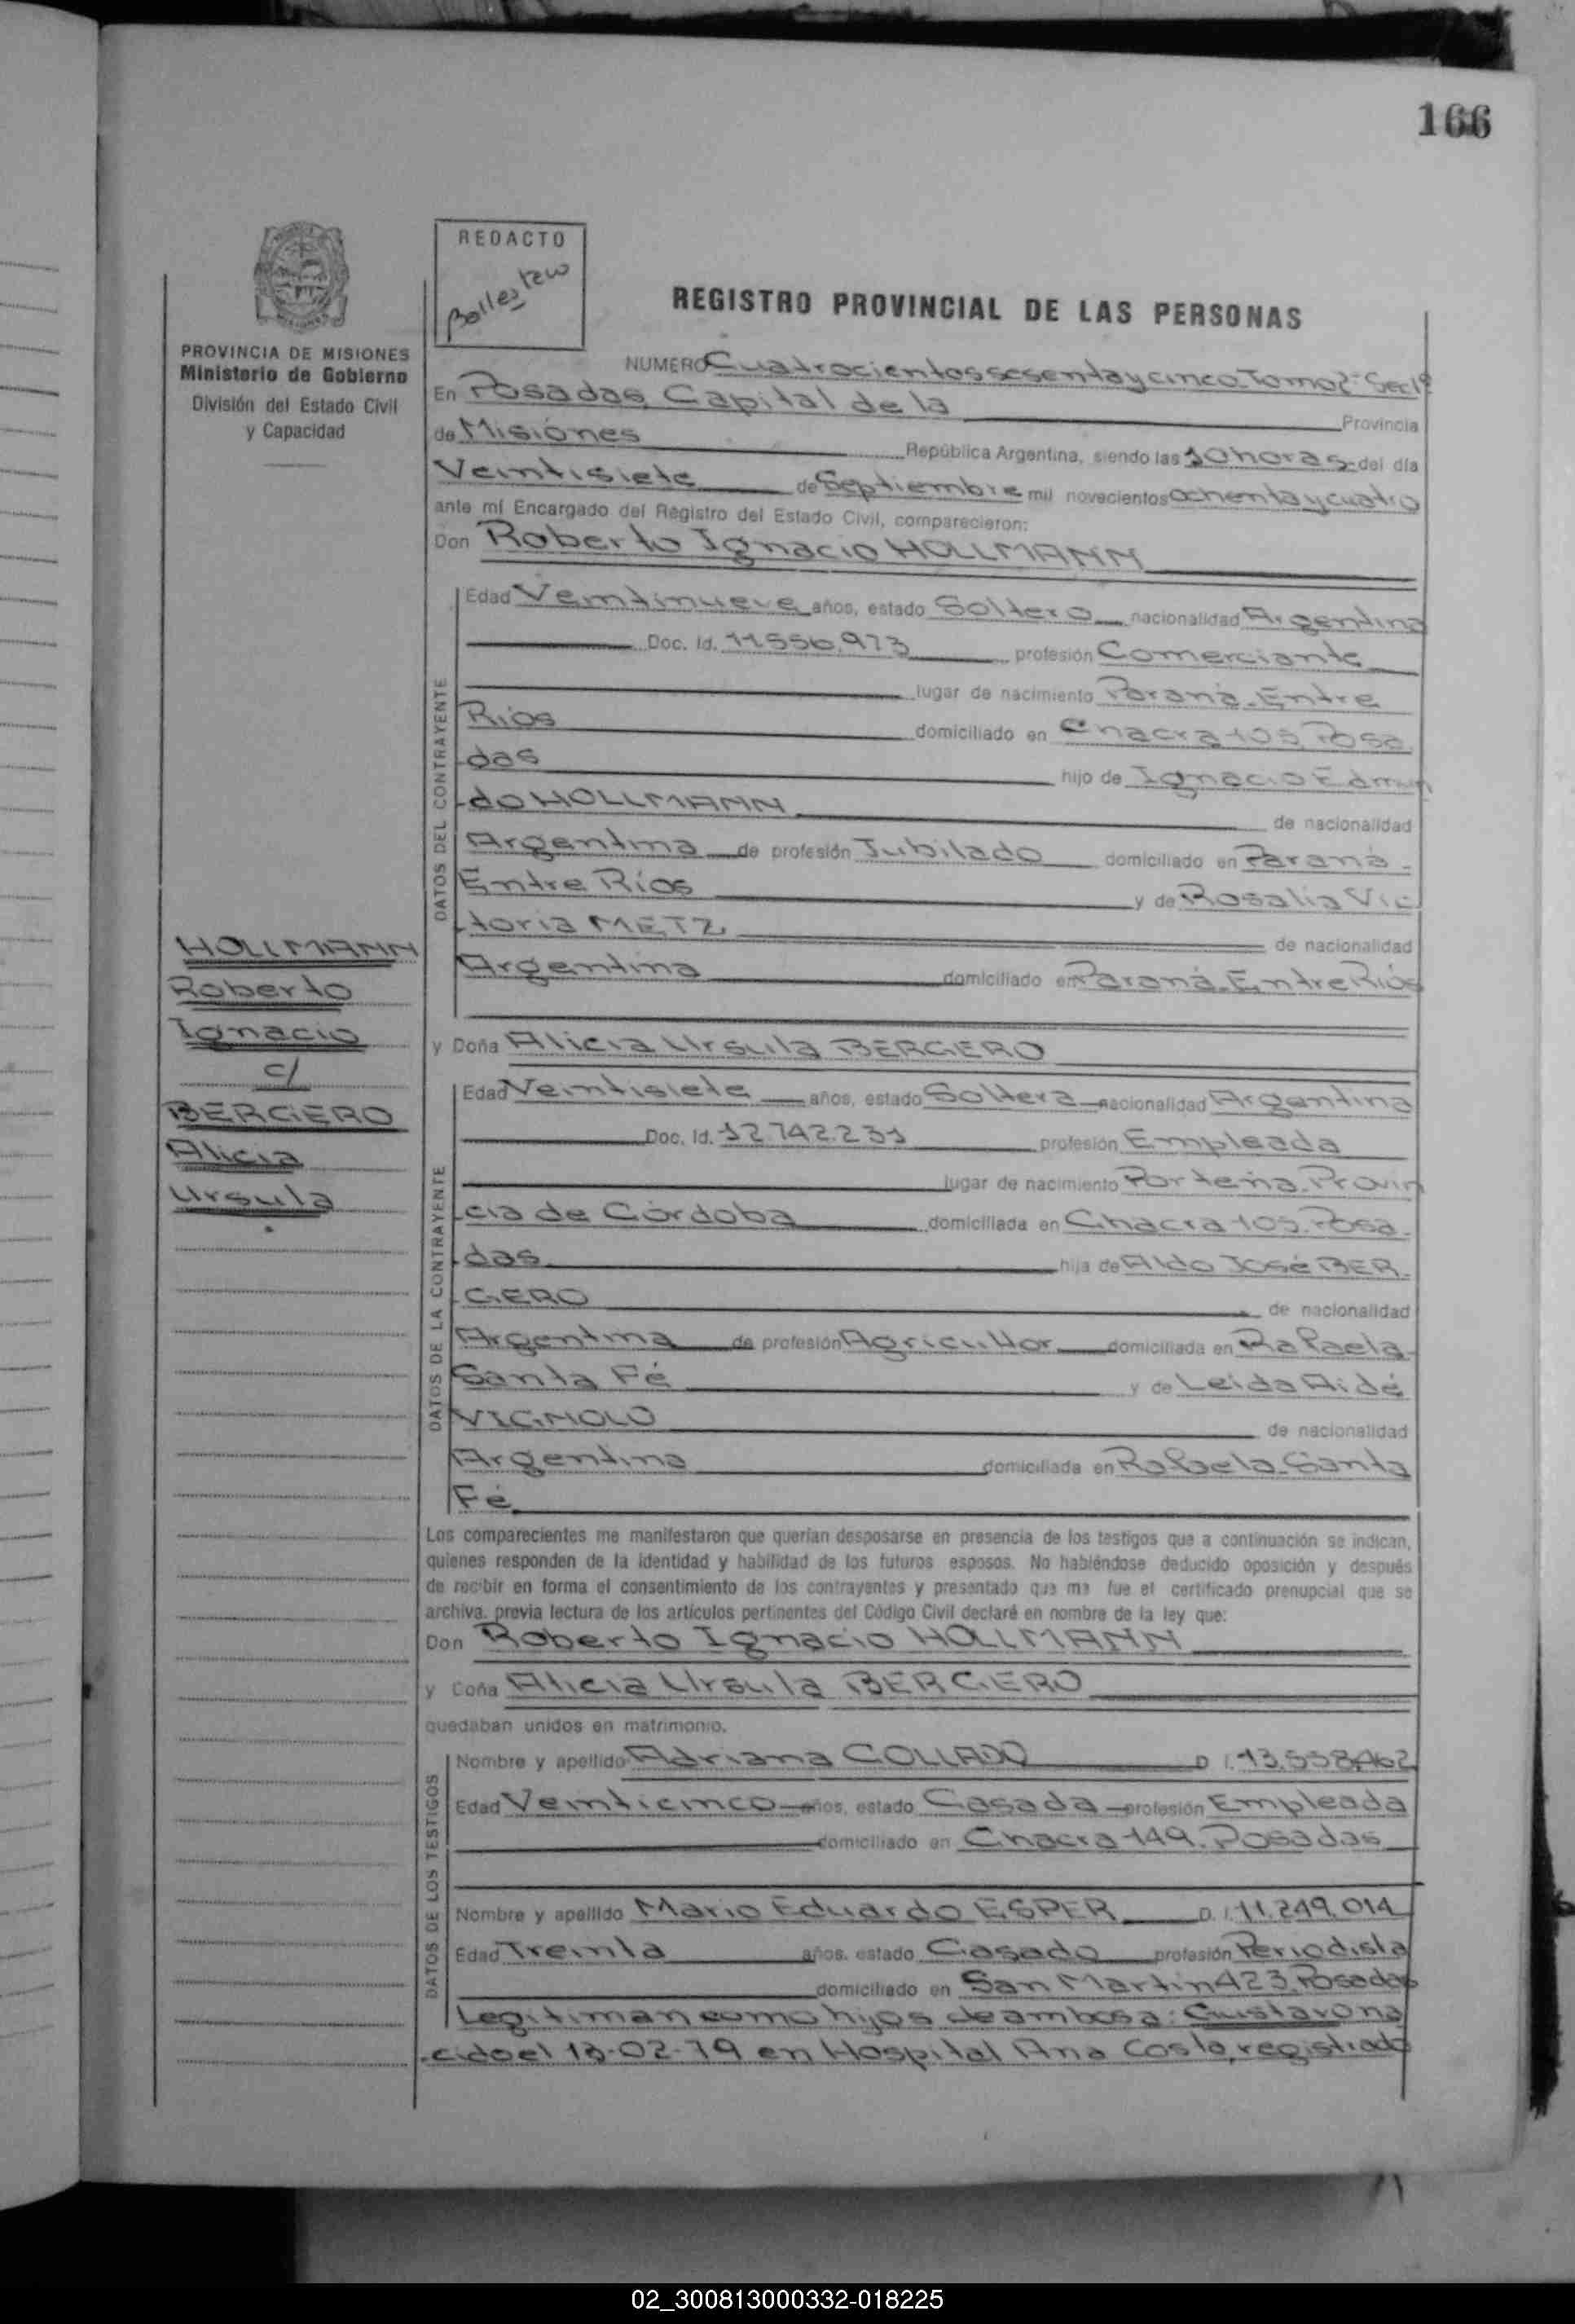 166
REDACTO
REGISTRO PROVINCIAL DE LAS PERSONAS
PROVINCIA DE MISIONES
Ministerio de Gobierno
División del Estado Civil
y Capacidad
NUMERO Cuatrocientossesentaycinco. Tomo2º Secc1º
En Posadas, Capital de la Provincia
de Misiones República Argentina, siendo las 10horas del día
Veintisiete de Septiembre mil novecientos ochentaycuatro
ante mí Encargado del Registro del Estado Civil, comparecieron:
Don Roberto Ignacio HOLLMANN
DATOS DEL CONTRAYENTE
Edad Veintinueve años, estado Soltero nacionalidad Argentina
Doc. Id. 11.556.973 profesión Comerciante
lugar de nacimiento Paraná. Entre
Ríos domiciliado en Chacra 105, Posa
das hijo de Ignacio Edmun
do HOLLMANN de nacionalidad
Argentina de profesión Jubilado domiciliado en Paraná
Entre Ríos y de Rosalia Vic
toria METZ de nacionalidad
Argentina domiciliado en Paraná. Entre Ríos
HOLLMANN
Roberto
Ignacio
c/
BERGERO
Alicia
Ursula
y Doña Alicia Ursula BERGERO
DATOS DE LA CONTRAYENTE
Edad Veintisiete años, estado Soltera nacionalidad Argentina
Doc. Id. 12.742.231 profesión Empleada
lugar de nacimiento Porteña. Provin
cia de Córdoba domiciliada en Chacra 105. Posa
das hija de Aldo José BER
GERO de nacionalidad
Argentina de profesión Agricultor domiciliada en Rafaela
Santa Fé y de Leida Aidé
VIGNOLO de nacionalidad
Argentina domiciliada en Rafaela. Santa
Fé
Los comparecientes me manifestaron que querían desposarse en presencia de los testigos que a continuación se indican,
quienes responden de la identidad y habilidad de los futuros esposos. No habiéndose deducido oposición y después
de recibir en forma el consentimiento de los contrayentes y presentado que me fue el certificado prenupcial que se
archiva, previa lectura de los artículos pertinentes del Código Civil declaré en nombre de la ley que:
Don Roberto Ignacio HOLLMANN
y Doña Alicia Ursula BERGERO
quedaban unidos en matrimonio.
DATOS DE LOS TESTIGOS
Nombre y apellido Adriana COLLADO D.I. 13.558.462
Edad Veinticinco años, estado Casada profesión Empleada
domiciliado en Chacra 149. Posadas
Nombre y apellido Mario Eduardo ESPER D.I. 11.249.014
Edad Treinta años, estado Casado profesión Periodista
domiciliado en San Martin 423. Posadas
Legitiman como hijos de ambos a: Gustavo na
cido el 13-02-79 en Hospital Ana Costa, registrado
02_300813000332-018225